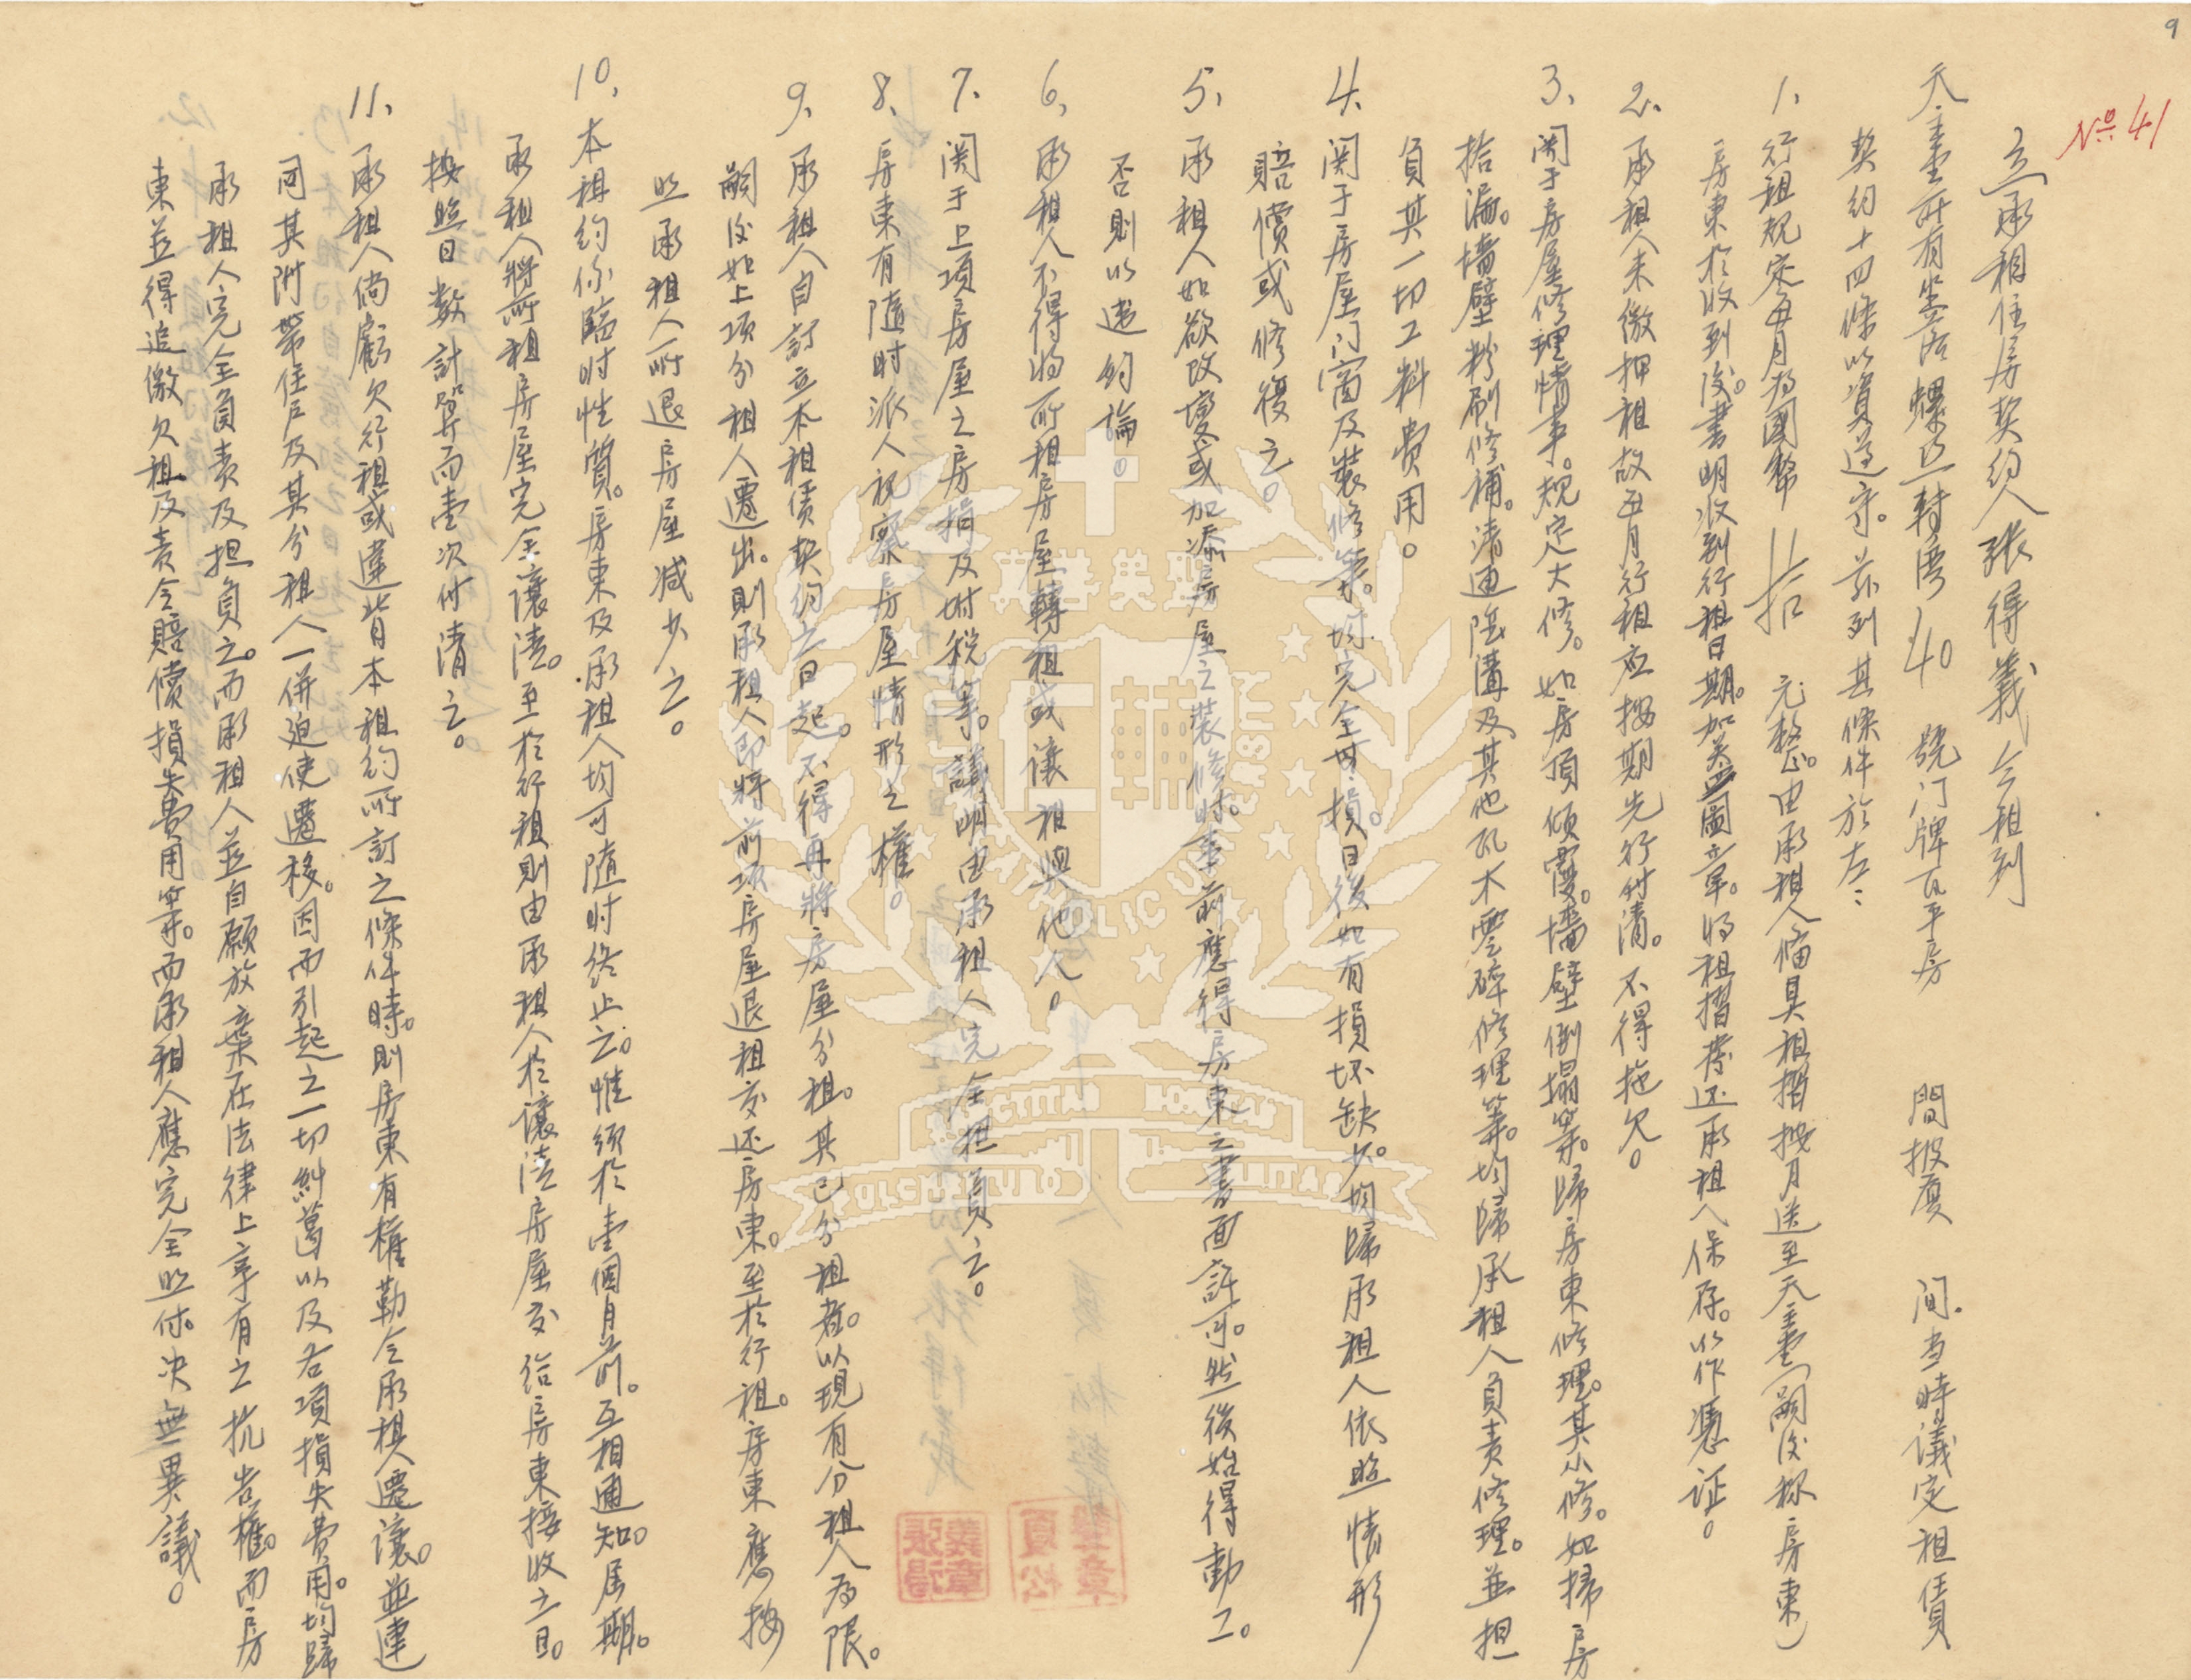 9
No. 41
立承租住房契約人張得義今租到
天主堂所有坐落螺丝轉湾40號门牌瓦平房 間披厦 间.当時議定租賃
契約十四條以資遵守。兹列其條件於左：
1、行租規定每月為國幣 拾 元整。由承租人備具租摺按月送至天主堂（嗣後称房東）
房東於收到後。書明收到行租日期。加盖圖章。將租摺發还承租人保存。以作憑证。
2、承租人未繳押租故每月行租应按期先行付清。不得拖欠。
3、関于房屋修理情事。規定大修。如房頂傾覆。墻壁倒塌等。歸房東修理。其小修。如掃房
拾漏。墻壁粉刷修補。清通陰溝及其他瓦木零碎修理等。均歸承租人負责修理。並担
負其一切工料费用。
4、関于房屋门窗及裝修等。均完全無損。日後如有損坏缺少。均歸承租人依照情形
賠償或修復之。
5、承租人如欲改變或加添房屋之裝修时。事前應得房東之書面許可。然後始得動工。
否則以违約論。
6、承租人不得將所租房屋轉租或讓租與他人。
7、関于上項房屋之房捐及坿税等。議明由承租人完全担負之。
8、房東有随时派人視察房屋情形之權。
9、承租人自訂立本租賃契約之日起。不得再將房屋分租。其已分租者。以現有分租人為限。
嗣後如上项分租人遷出。則承租人即將前项房屋退租交还房東。至於行租。房東應按
照承租人所退房屋減少之。
10、本租約係臨时性質。房東及承租人均可随时终止之。惟須於壹個月前。互相通知。届期。
承租人將所租房屋完全讓清。至於行租則由承租人於讓清房屋交给房東接收之日。
按照日數計算而壹次付清之。
11、承租人倘虧欠行租或違背本租約所訂之條件時。則房東有權勒令承租人遷讓。並連
同其附帶住戶及其分租人一併迫使遷移。因而引起之一切糾葛以及各項損失费用。均歸
承租人完全負责及担負之。而承租人並自願放棄在法律上享有之抗告權。而房
東並得追繳欠租及责令賠償損失费用等。而承租人應完全照付。决無異議。